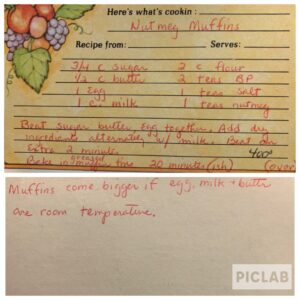 Here's what's cookin:
Nutmeg Muffins
Recipe from: Serves:
3/4 c sugar 2 c flour
1/2 c butter 2 teas BP
1 Egg 1 teas salt
1 c. milk 1 teas nutmeg
Beat sugar, butter, egg together. Add dry
ingredients alternating w/ milk. Beat an
extra 2 minutes. 400°
Bake in greased muffin tins 20 minutes (ish) (over
Muffins come bigger if egg, milk + butter
are room temperature.
PICLAB